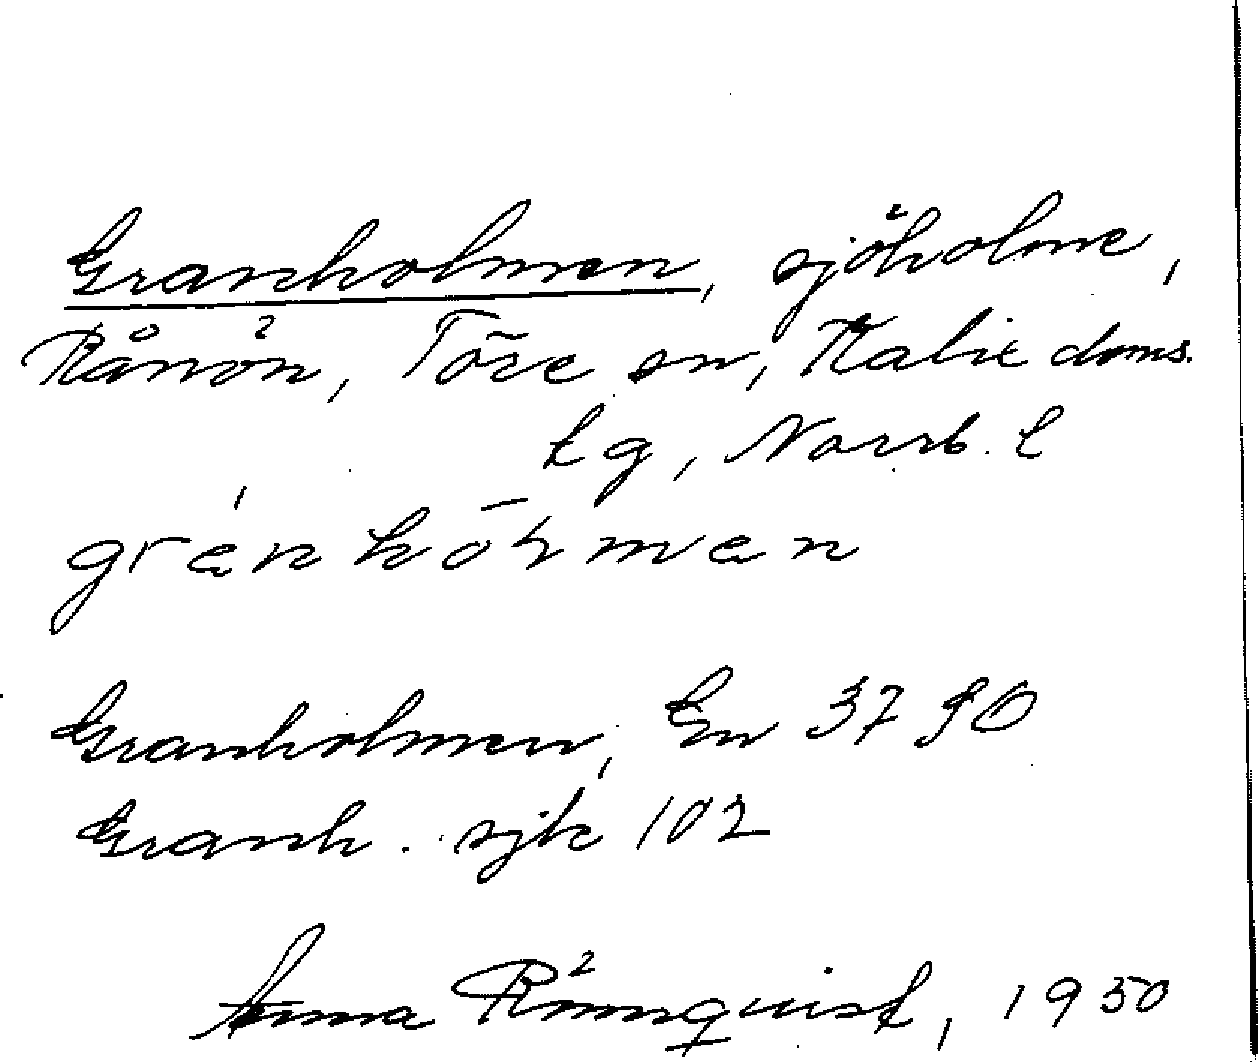 Granholmen, sjöholme,
Rånön, Töre sn, Kalix doms.
tg, Norrb. l
Granholmen, En 3790
Granh. sjk 102
Anna Rönnquist, 1950